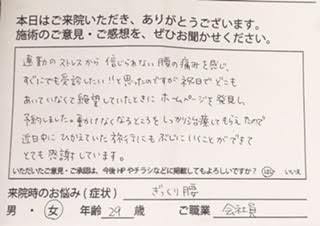 本日はご来院いただき、ありがとうございます。
施術のご意見・ご感想を、ぜひお聞かせください。
通勤のストレスから信じられない腰の痛みを感じ、
すぐにでも受診したい!!と思ったのですが祝日でどこも
あいていなくて絶望していたときにホームページを発見し、
予約しました。動かけなくなるところをしっかり治療してもらえたので
近日中にひかえていた旅行にもぶじにいくことができて
とても感謝しています。
いただいたご意見・ご承認は、今後HPやチラシなどに掲載してもよろしいですか? はい いいえ
来院時のお悩み(症状) ぎっくり腰
男・女 年齢 29 歳 ご職業 会社員